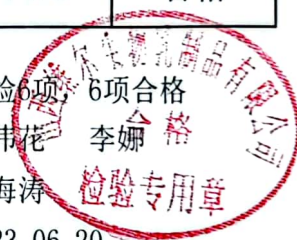 验6项，6项合格
韦花 李娜
海涛
23-06-20
尔生物乳制品有限公司
合格
检验专用章